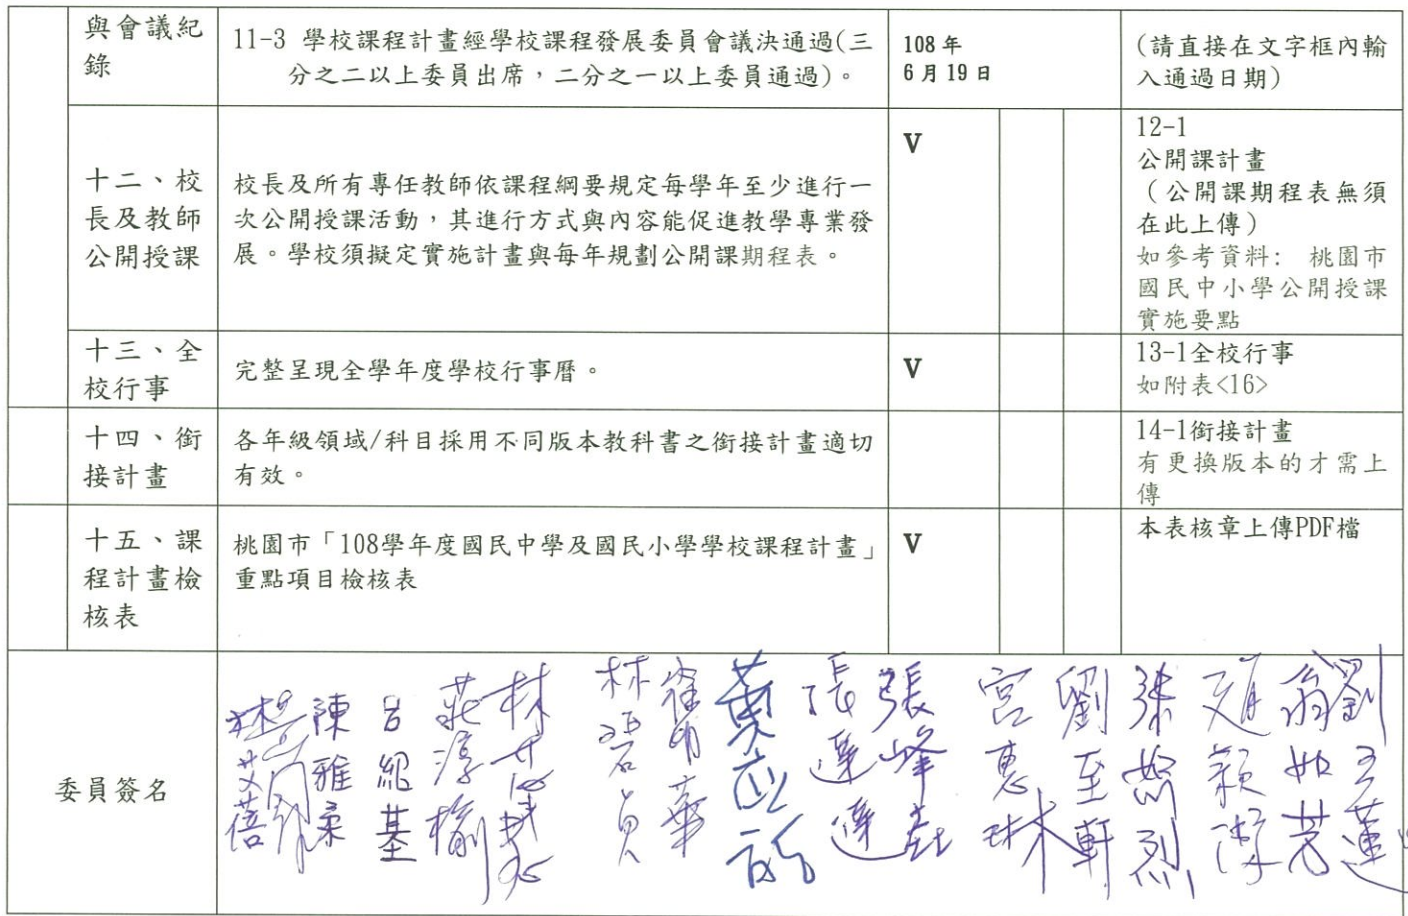 與會議紀
錄
11-3 學校課程計畫經學校課程發展委員會議決通過(三
分之二以上委員出席，二分之一以上委員通過)。
108 年
6 月 19 日
(請直接在文字框內輸
入通過日期)
十二、校
長及教師
公開授課
校長及所有專任教師依課程綱要規定每學年至少進行一
次公開授課活動，其進行方式與內容能促進教學專業發
展。學校須擬定實施計畫與每年規劃公開課期程表。
V
12-1
公開課計畫
（公開課期程表無須
在此上傳）
如參考資料: 桃園市
國民中小學公開授課
實施要點
十三、全
校行事
完整呈現全學年度學校行事曆。
V
13-1全校行事
如附表<16>
十四、銜
接計畫
各年級領域/科目採用不同版本教科書之銜接計畫適切
有效。
14-1銜接計畫
有更換版本的才需上
傳
十五、課
程計畫檢
核表
桃園市「108學年度國民中學及國民小學學校課程計畫」
重點項目檢核表
V
本表核章上傳PDF檔
委員簽名
陳雅柔
呂紹基
莊淳榆
林碧貞
張達達
張峰
宮惠琳
劉至軒
翁如芳